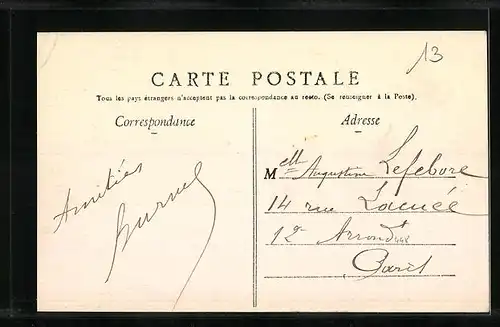 13
CARTE POSTALE
Tous les pays étrangers n'acceptent pas la correspondance au recto. (Se renseigner à la Poste).
Correspondance
Adresse
Amitiés
Melle Augustine Lefebvre
14 rue Lacuée
12e Arrondt
Paris